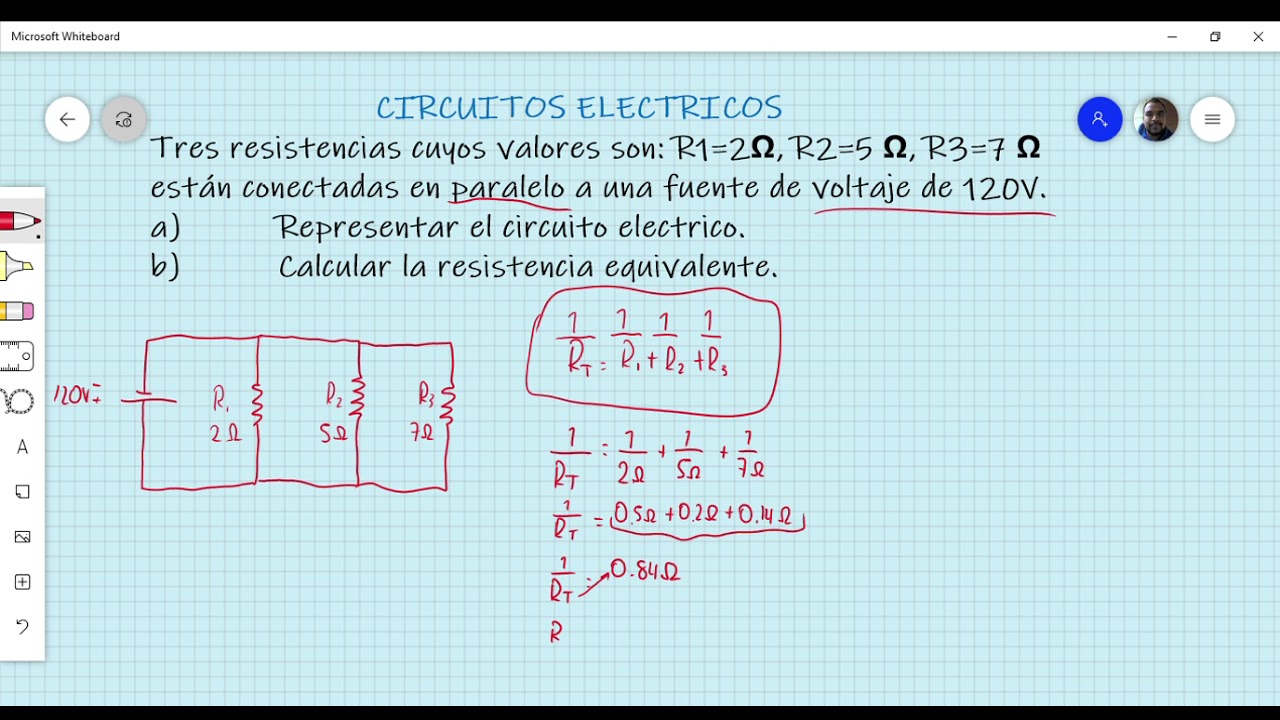 Microsoft Whiteboard
CIRCUITOS ELECTRICOS
Tres resistencias cuyos valores son: R1=2Ω, R2=5 Ω, R3=7 Ω
están conectadas en paralelo a una fuente de voltaje de 120V.
a) Representar el circuito electrico.
b) Calcular la resistencia equivalente.
120V
R1 2Ω
R2 5Ω
R3 7Ω
1/RT = 1/R1 + 1/R2 + 1/R3
1/RT = 1/2Ω + 1/5Ω + 1/7Ω
1/RT = 0.5Ω + 0.2Ω + 0.14Ω
1/RT = 0.84Ω
R
A